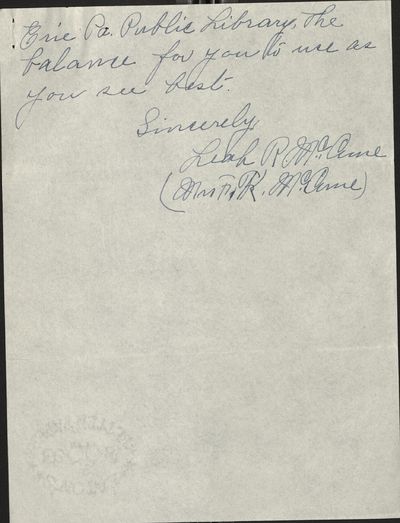 Erie Pa. Public Library, the
balance for you to use as
you see best.
Sincerely,
Leah R. McCune
(Mrs. F. K. McCune)